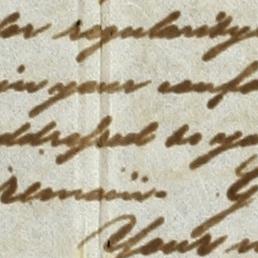 for regularity
in your conf
addressed to yo
remain
Your